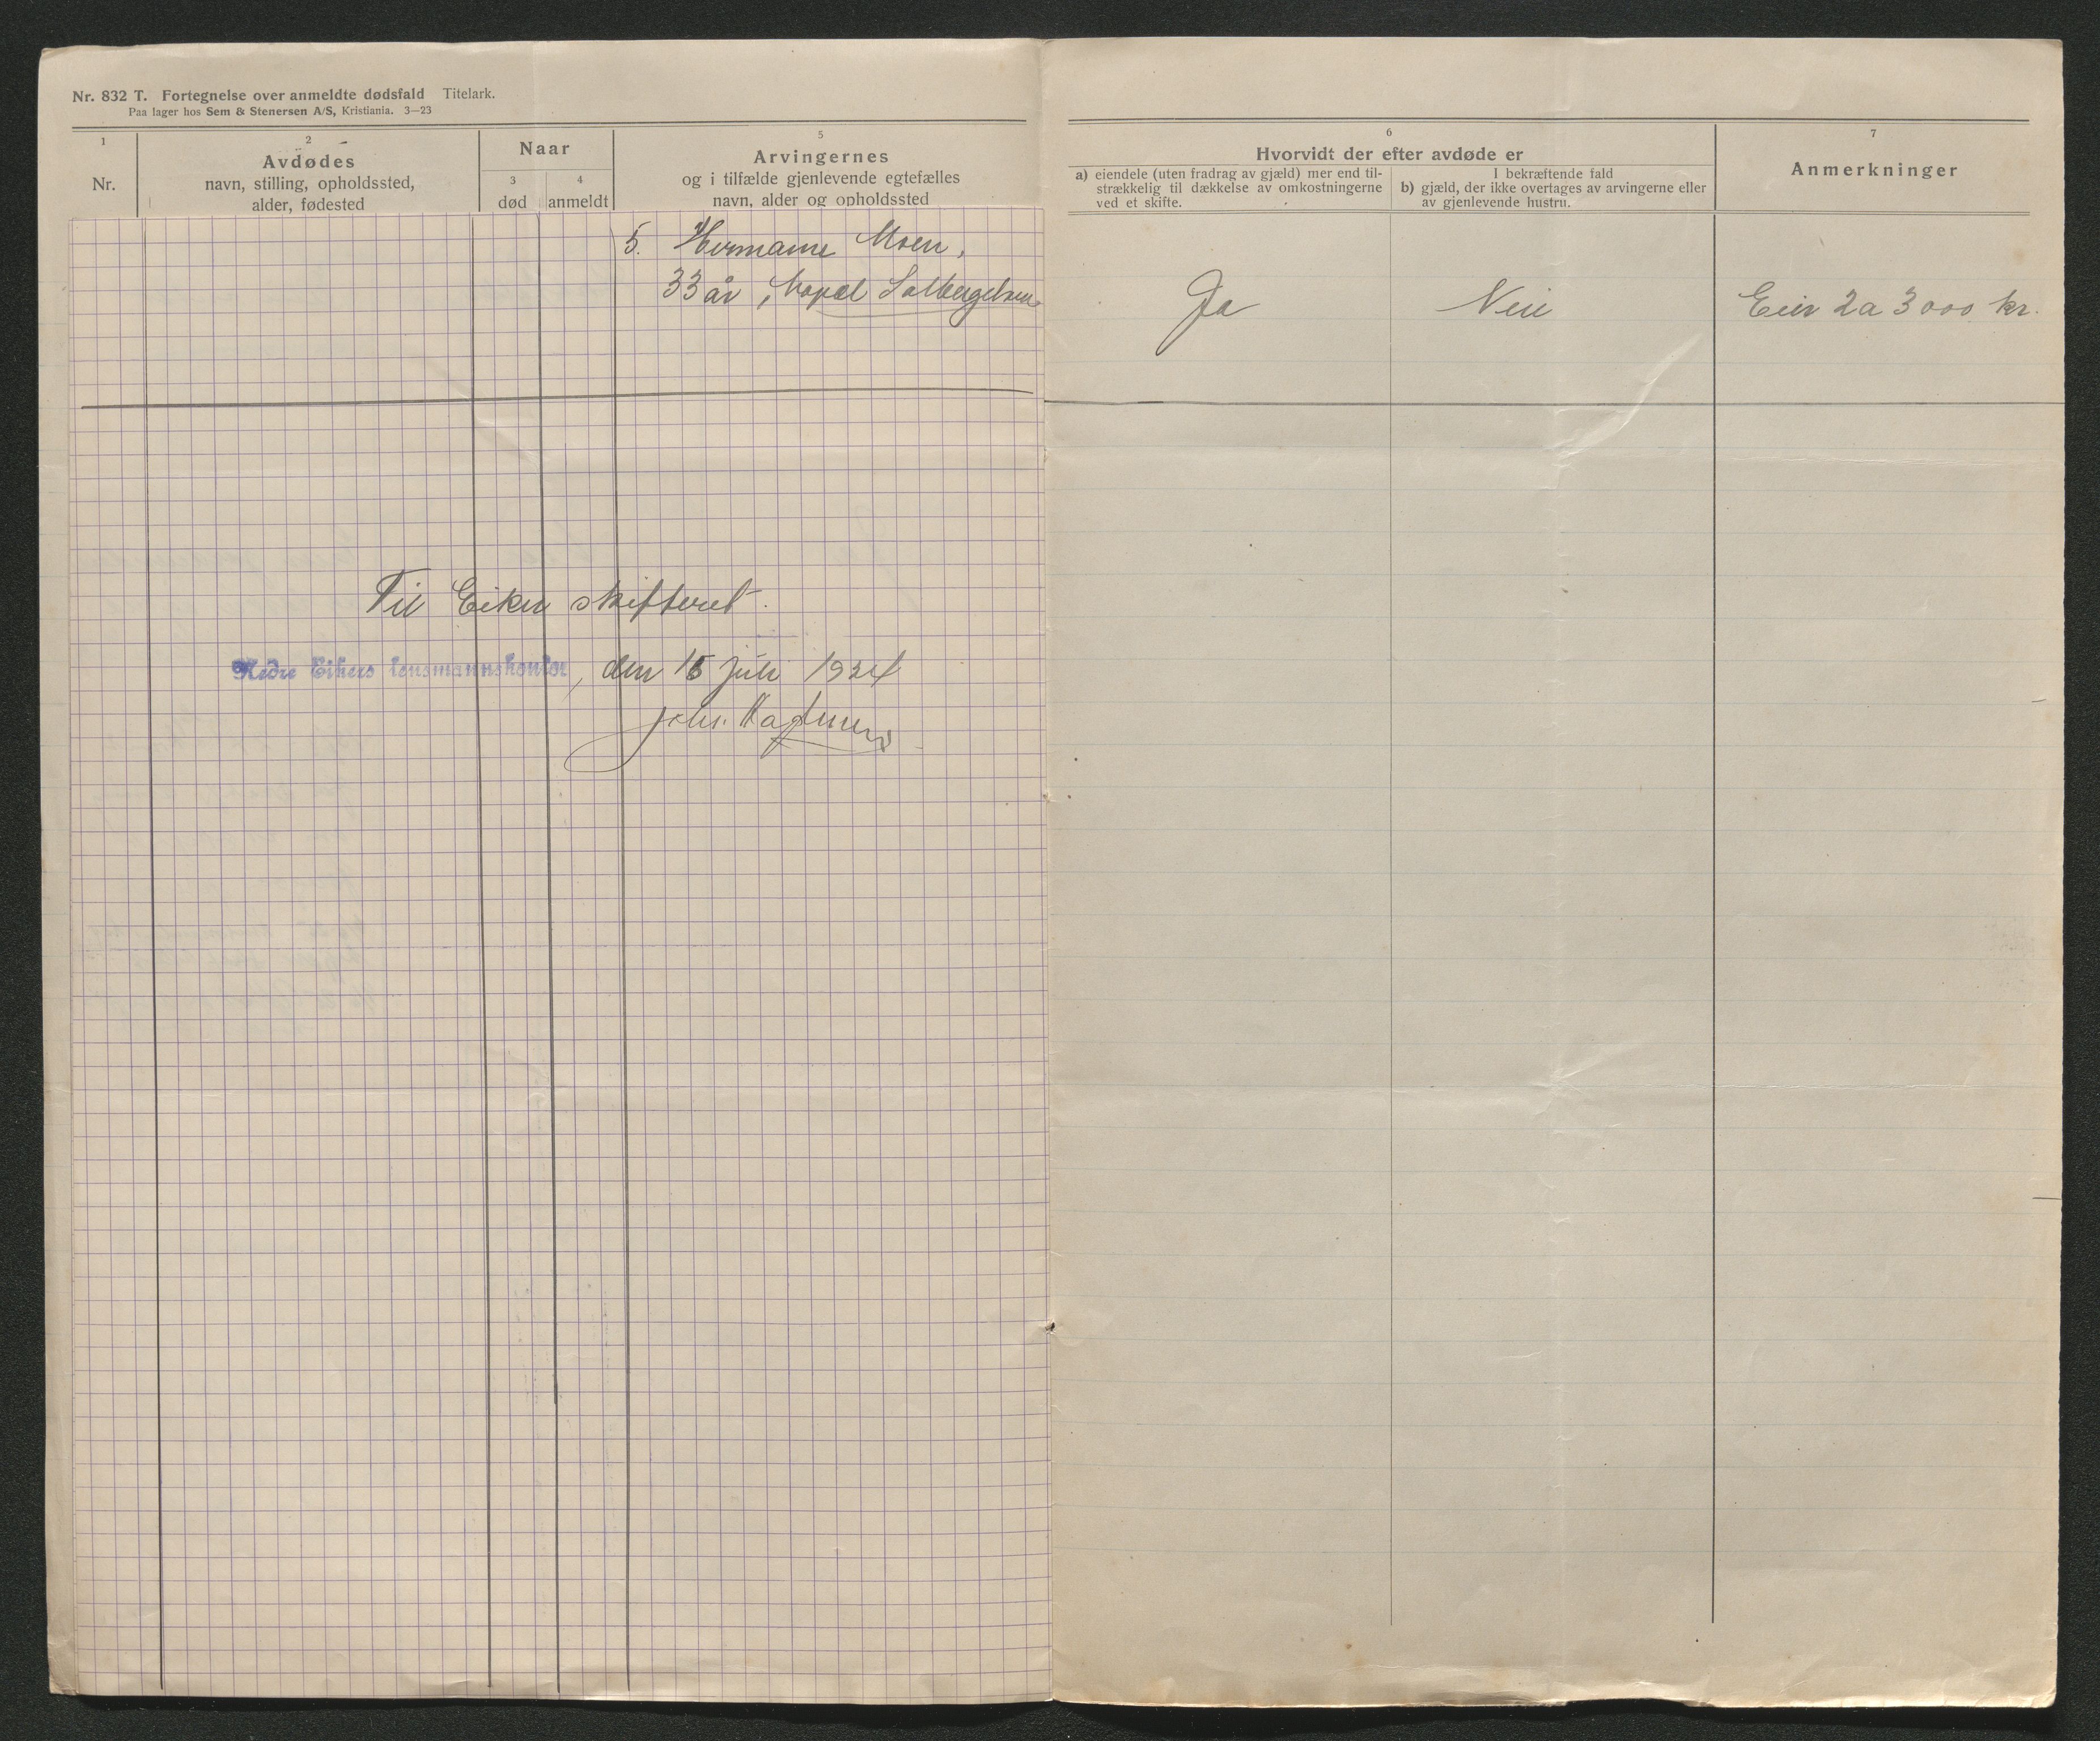 Nr. 832 T. Fortegnelse over anmeldte dødsfald Titelark.
Paa lager hos Sem & Stenersen A/S, Kristiania. 3—23
1
Nr.
2
Avdødes
navn, stilling, opholdssted,
alder, fødested
Naar
3
død
4
anmeldt
5
Arvingernes
og i tilfælde gjenlevende egtefælles
navn, alder og opholdssted
6
Hvorvidt der efter avdøde er
a) eiendele (uten fradrag av gjæld) mer end til-
strækkelig til dækkelse av omkostningerne
ved et skifte.
I bekræftende fald
b) gjæld, der ikke overtages av arvingerne eller
av gjenlevende hustru.
7
Anmerkninger
5. Hermane Moen,
33 år, Solbergelven
Ja
Nei
Eier 2 a 3000 kr.
Til Eiker skifteret.
Nedre Eikers lensmannskontor, den 15 juli 1924
Joh.